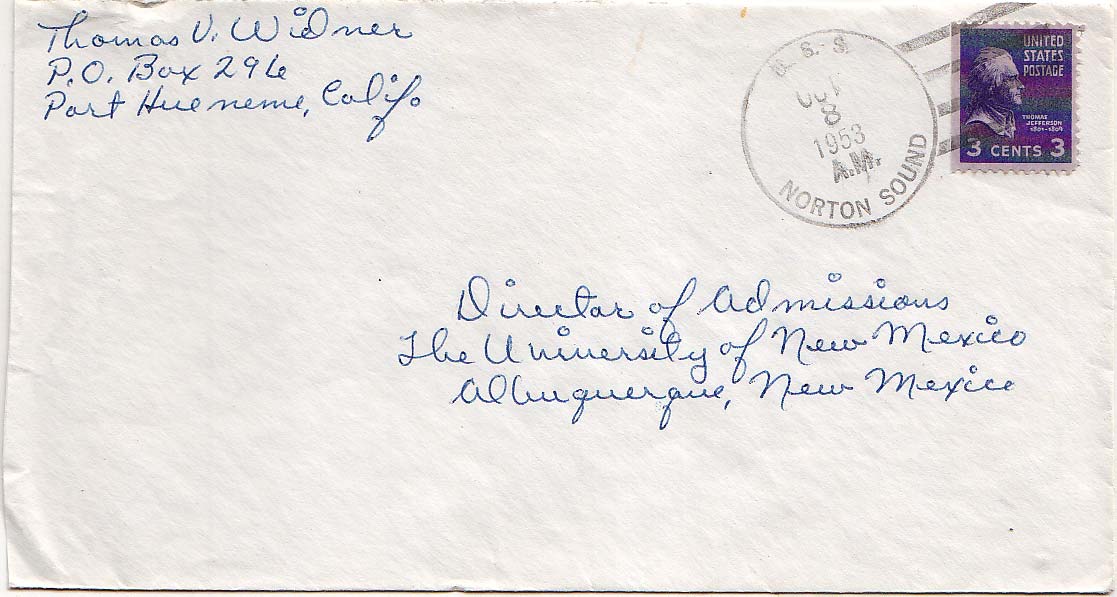 Thomas V. Widner
P.O. Box 296
Port Hueneme, Calif.
U.S.S.
OCT
8
1953
A.M.
NORTON SOUND
UNITED
STATES
POSTAGE
THOMAS
JEFFERSON
1801-1809
3 CENTS 3
Director of Admissions
The University of New Mexico
Albuquerque, New Mexico